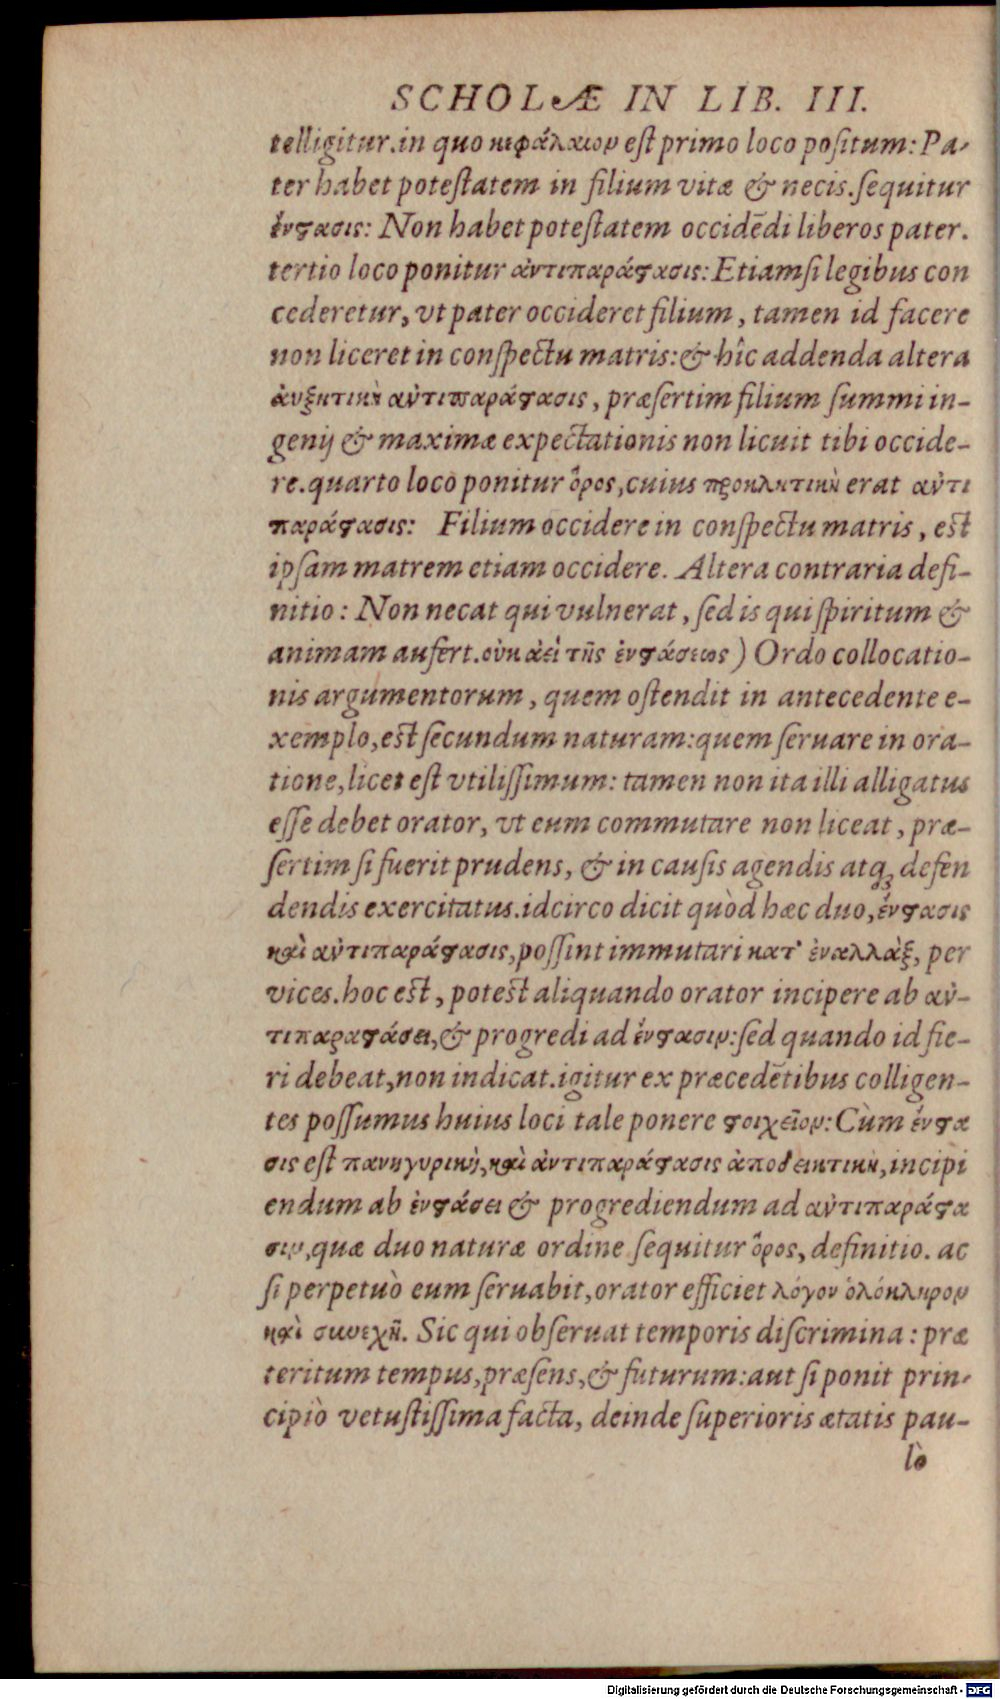 SCHOLÆ IN LIB. III.
telligitur.in quo κεφάλαιον est primo loco positum: Pa-
ter habet potestatem in filium vitæ & necis.sequitur
ἔνϛασις: Non habet potestatem occidēdi liberos pater.
tertio loco ponitur ἀντιπαράϛασις: Etiamsi legibus con
cederetur, vt pater occideret filium, tamen id facere
non liceret in conspectu matris: & hîc addenda altera
ἀυξητικὴ ἀντιπαράϛασις, præsertim filium summi in-
genij & maximæ expectationis non licuit tibi occide-
re.quarto loco ponitur ὅρος, cuius προκλητικὴ erat ἀντι
παράϛασις: Filium occidere in conspectu matris, est
ipsam matrem etiam occidere. Altera contraria defi-
nitio: Non necat qui vulnerat, sed is qui spiritum &
animam aufert.οὐκ ἀεὶ τῆς ἐνϛάσεως) Ordo collocatio-
nis argumentorum, quem ostendit in antecedente e-
xemplo, est secundum naturam: quem seruare in ora-
tione, licet est vtilissimum: tamen non ita illi alligatus
esse debet orator, vt eum commutare non liceat, præ-
sertim si fuerit prudens, & in causis agendis atq; defen
dendis exercitatus.idcirco dicit quòd hæc duo, ἔνϛασις
καὶ ἀντιπαράϛασις, possint immutari κατ' ἐναλλὰξ, per
vices.hoc est, potest aliquando orator incipere ab ἀν-
τιπαραϛάσει, & progredi ad ἔνϛασιν: sed quando id fie-
ri debeat, non indicat.igitur ex præcedētibus colligen-
tes possumus huius loci tale ponere ϛοιχεῖον: Cùm ἔνϛα
σις est πανηγυρικὴ, καὶ ἀντιπαράϛασις ἀποδεικτικὴ, incipi
endum ab ἐνϛάσει & progrediendum ad ἀντιπαράϛα
σιν, quæ duo naturæ ordine sequitur ὅρος, definitio. ac
si perpetuò eum seruabit, orator efficiet λόγον ὁλόκληρον
καὶ συνεχῆ. Sic qui obseruat temporis discrimina: præ
teritum tempus, præsens, & futurum: aut si ponit prin-
cipiò vetustissima facta, deinde superioris ætatis pau-
lò
Digitalisierung gefördert durch die Deutsche Forschungsgemeinschaft - DFG